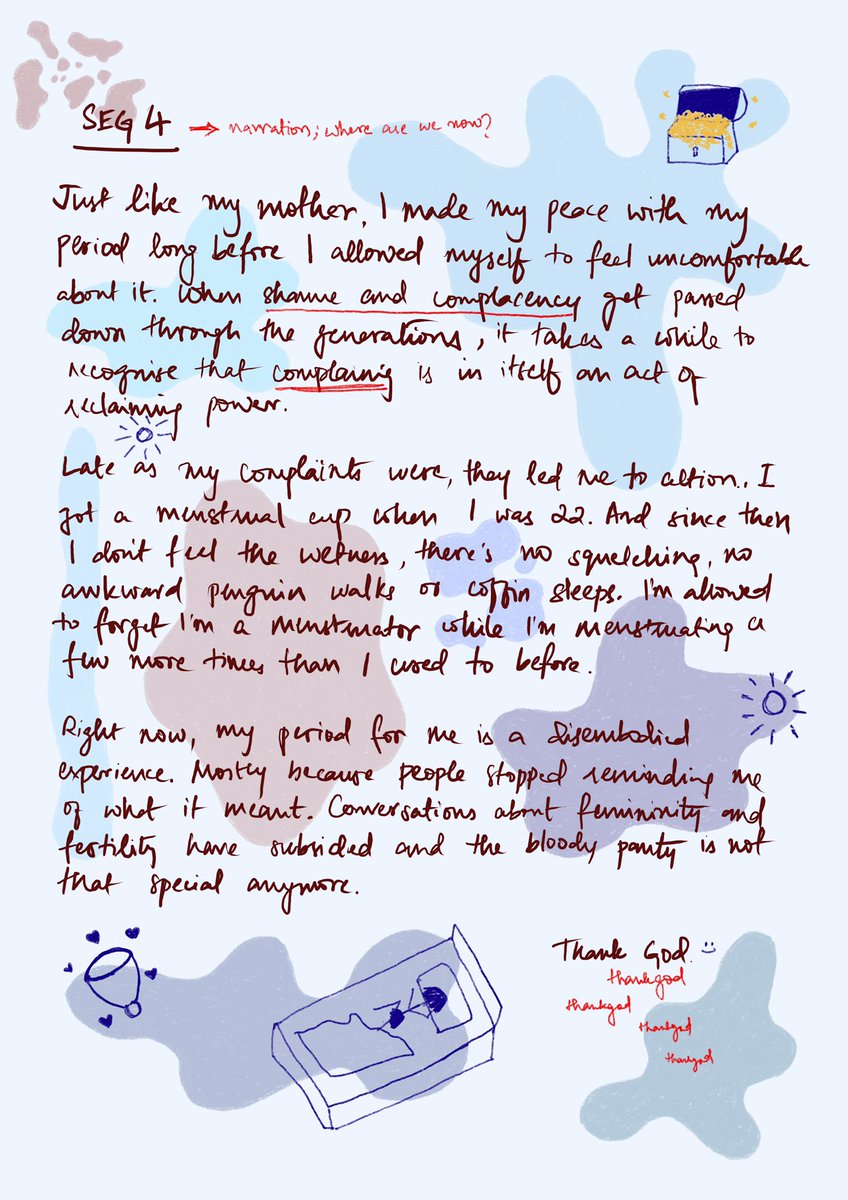 SEG 4 → narration; where are we now?
Just like my mother, I made my peace with my
period long before I allowed myself to feel uncomfortable
about it. When shame and complacency get passed
down through the generations, it takes a while to
recognise that complaining is in itself an act of
reclaiming power.
Late as my complaints were, they led me to action.. I
got a menstrual cup when I was 22. And since then
I don't feel the wetness, there's no squelching, no
awkward penguin walks or coffin sleeps. I'm allowed
to forget I'm a menstruator while I'm menstruating a
few more times than I used to before.
Right now, my period for me is a disembodied
experience. Mostly because people stopped reminding me
of what it meant. Conversations about femininity and
fertility have subsided and the bloody panty is not
that special anymore.
Thank God. :)
thankgod
thankgod
thankgod
thankgod